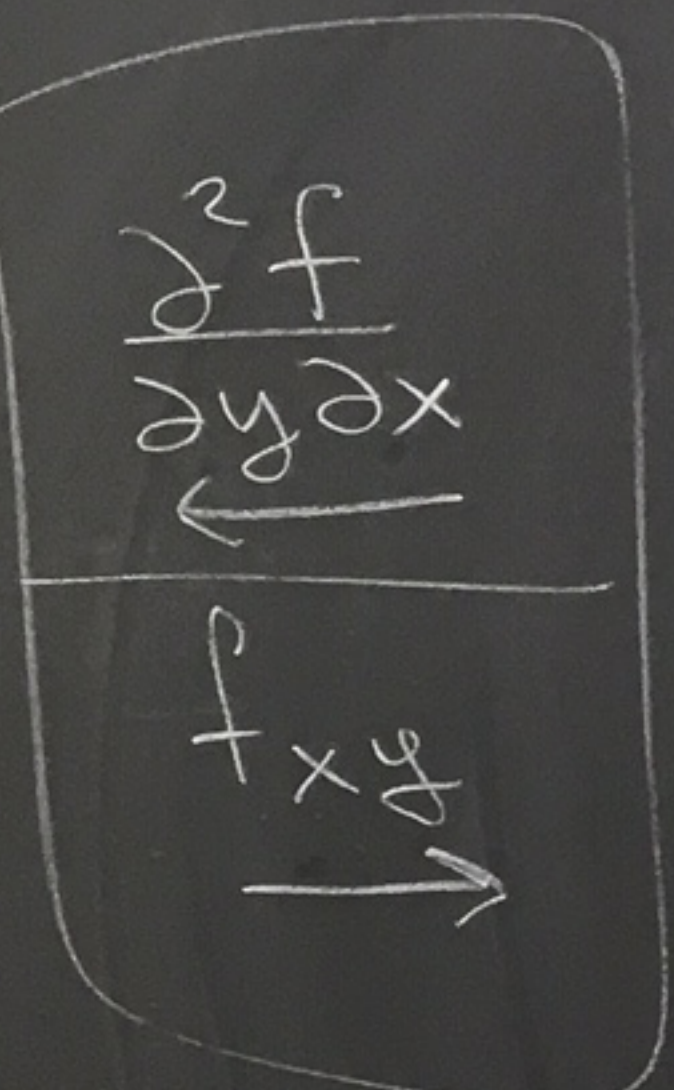 ∂²f
∂y∂x
←
f_xy
→